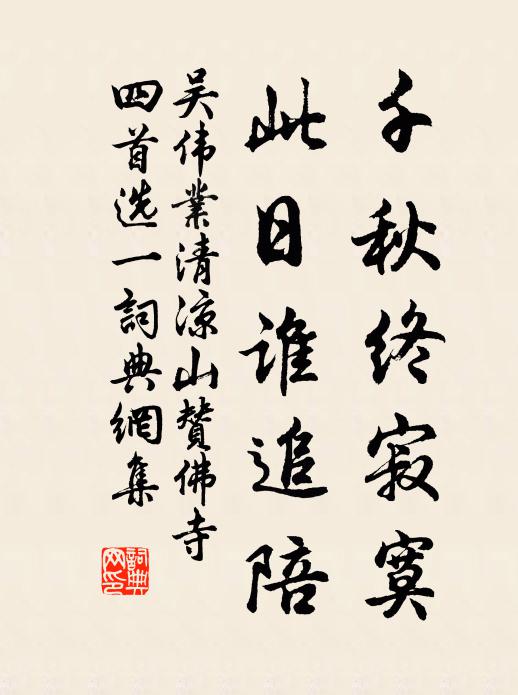 千秋终寂寞
此日谁追陪
吴伟业清凉山赞佛寺
四首选一詞典網集
詞典
网印